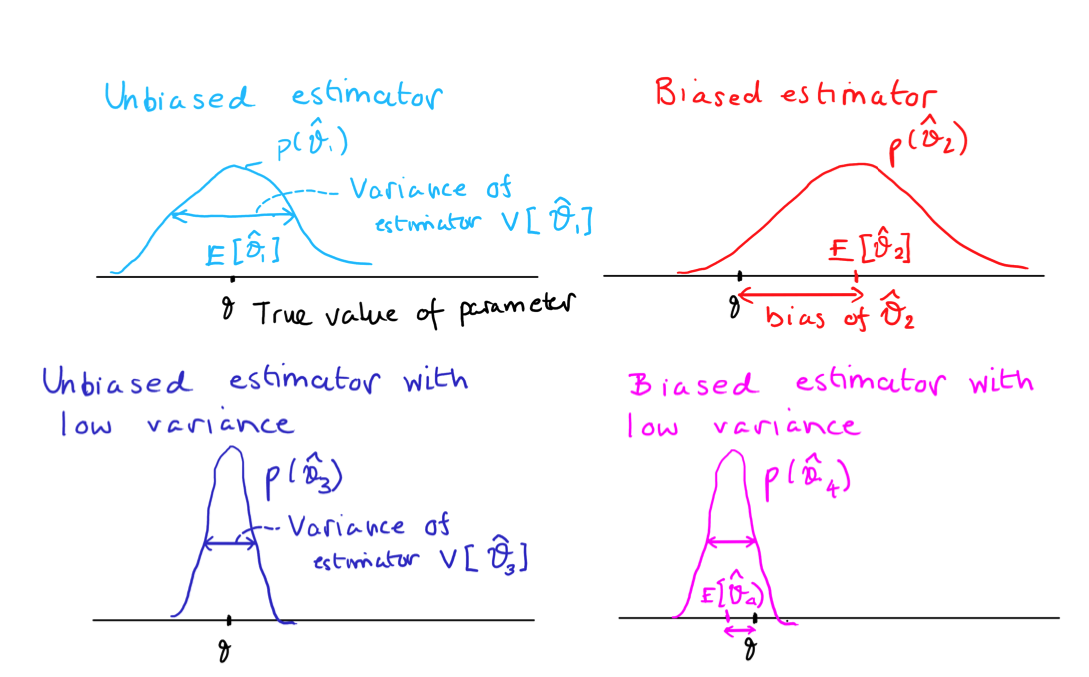 Unbiased estimator
p(θ̂₁)
Variance of
estimator V[θ̂₁]
E[θ̂₁]
θ True value of parameter
Biased estimator
p(θ̂₂)
E[θ̂₂]
θ
bias of θ̂₂
Unbiased estimator with
low variance
p(θ̂₃)
Variance of
estimator V[θ̂₃]
θ
Biased estimator with
low variance
p(θ̂₄)
E[θ̂₄)
θ